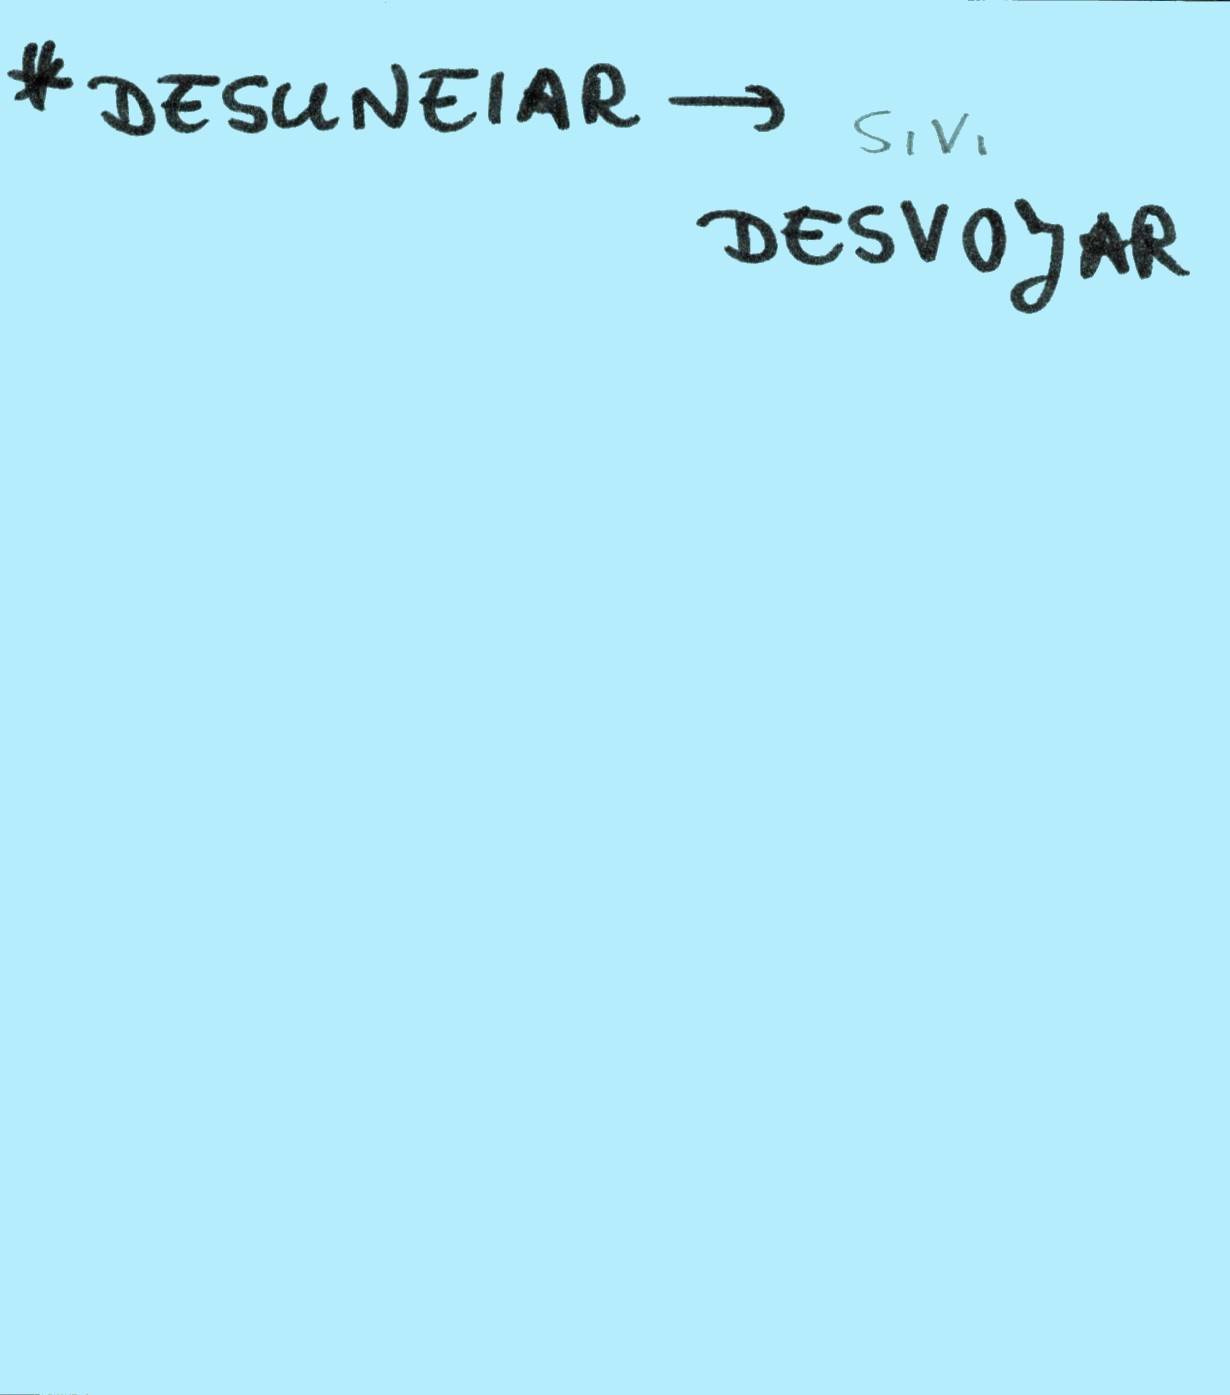 *DESUNEIAR →
S.V.
DESVOYAR